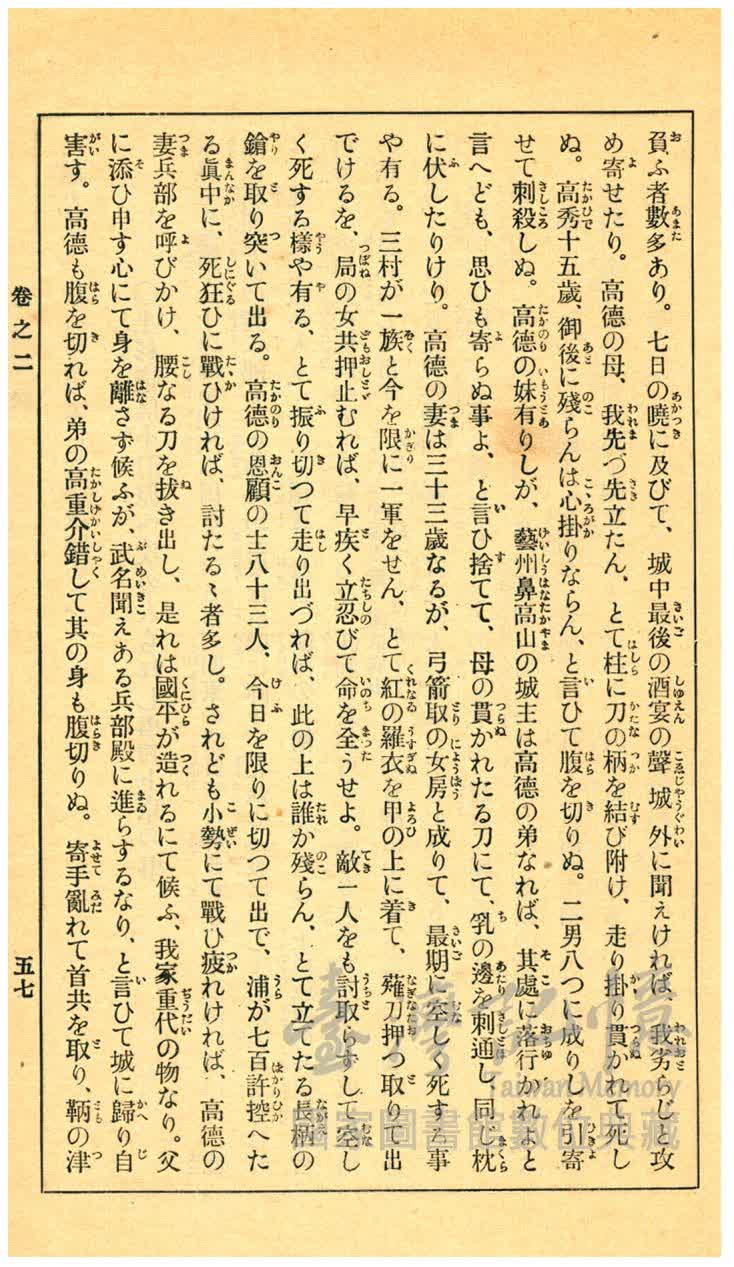 負ふ者數多あり。七日の曉に及びて、城中最後の酒宴の聲城外に聞えければ、我劣らじと攻
め寄せたり。高德の母、我先づ先立たん、とて柱に刀の柄を結び附け、走り掛り貫かれて死し
ぬ。高秀十五歲、御後に殘らんは心掛りならん、と言ひて腹を切りぬ。二男八つに成りしを引寄
せて刺殺しぬ。高德の妹有りしが、藝州鼻高山の城主は高德の弟なれば、其處に落行かれよと
言へども、思ひも寄らぬ事よ、と言ひ捨てて、母の貫かれたる刀にて、乳の邊を刺通し、同じ枕
に伏したりけり。高德の妻は三十三歲なるが、弓箭取の女房と成りて、最期に空しく死する事
や有る。三村が一族と今を限に一軍をせん、とて紅の羅衣を甲の上に着て、薙刀押つ取りて出
でけるを、局の女共押止むれば、早疾く立忍びて命を全うせよ。敵一人をも討取らずして空し
く死する樣や有る、とて振り切つて走り出づれば、此の上は誰か殘らん、とて立てたる長柄の
鎗を取り突いて出る。高德の恩顧の士八十三人、今日を限りに切つて出で、浦が七百許控へた
る眞中に、死狂ひに戰ひければ、討たるゝ者多し。されども小勢にて戰ひ疲れければ、高德の
妻兵部を呼びかけ、腰なる刀を拔き出し、是れは國平が造れるにて候ふ、我家重代の物なり。父
に添ひ申す心にて身を離さず候ふが、武名聞えある兵部殿に進らするなり、と言ひて城に歸り自
害す。高德も腹を切れば、弟の高重介錯して其の身も腹切りぬ。寄手亂れて首共を取り、鞆の津
卷之二
五七
臺灣記憶
Taiwan Memory
國家圖書館數位典藏